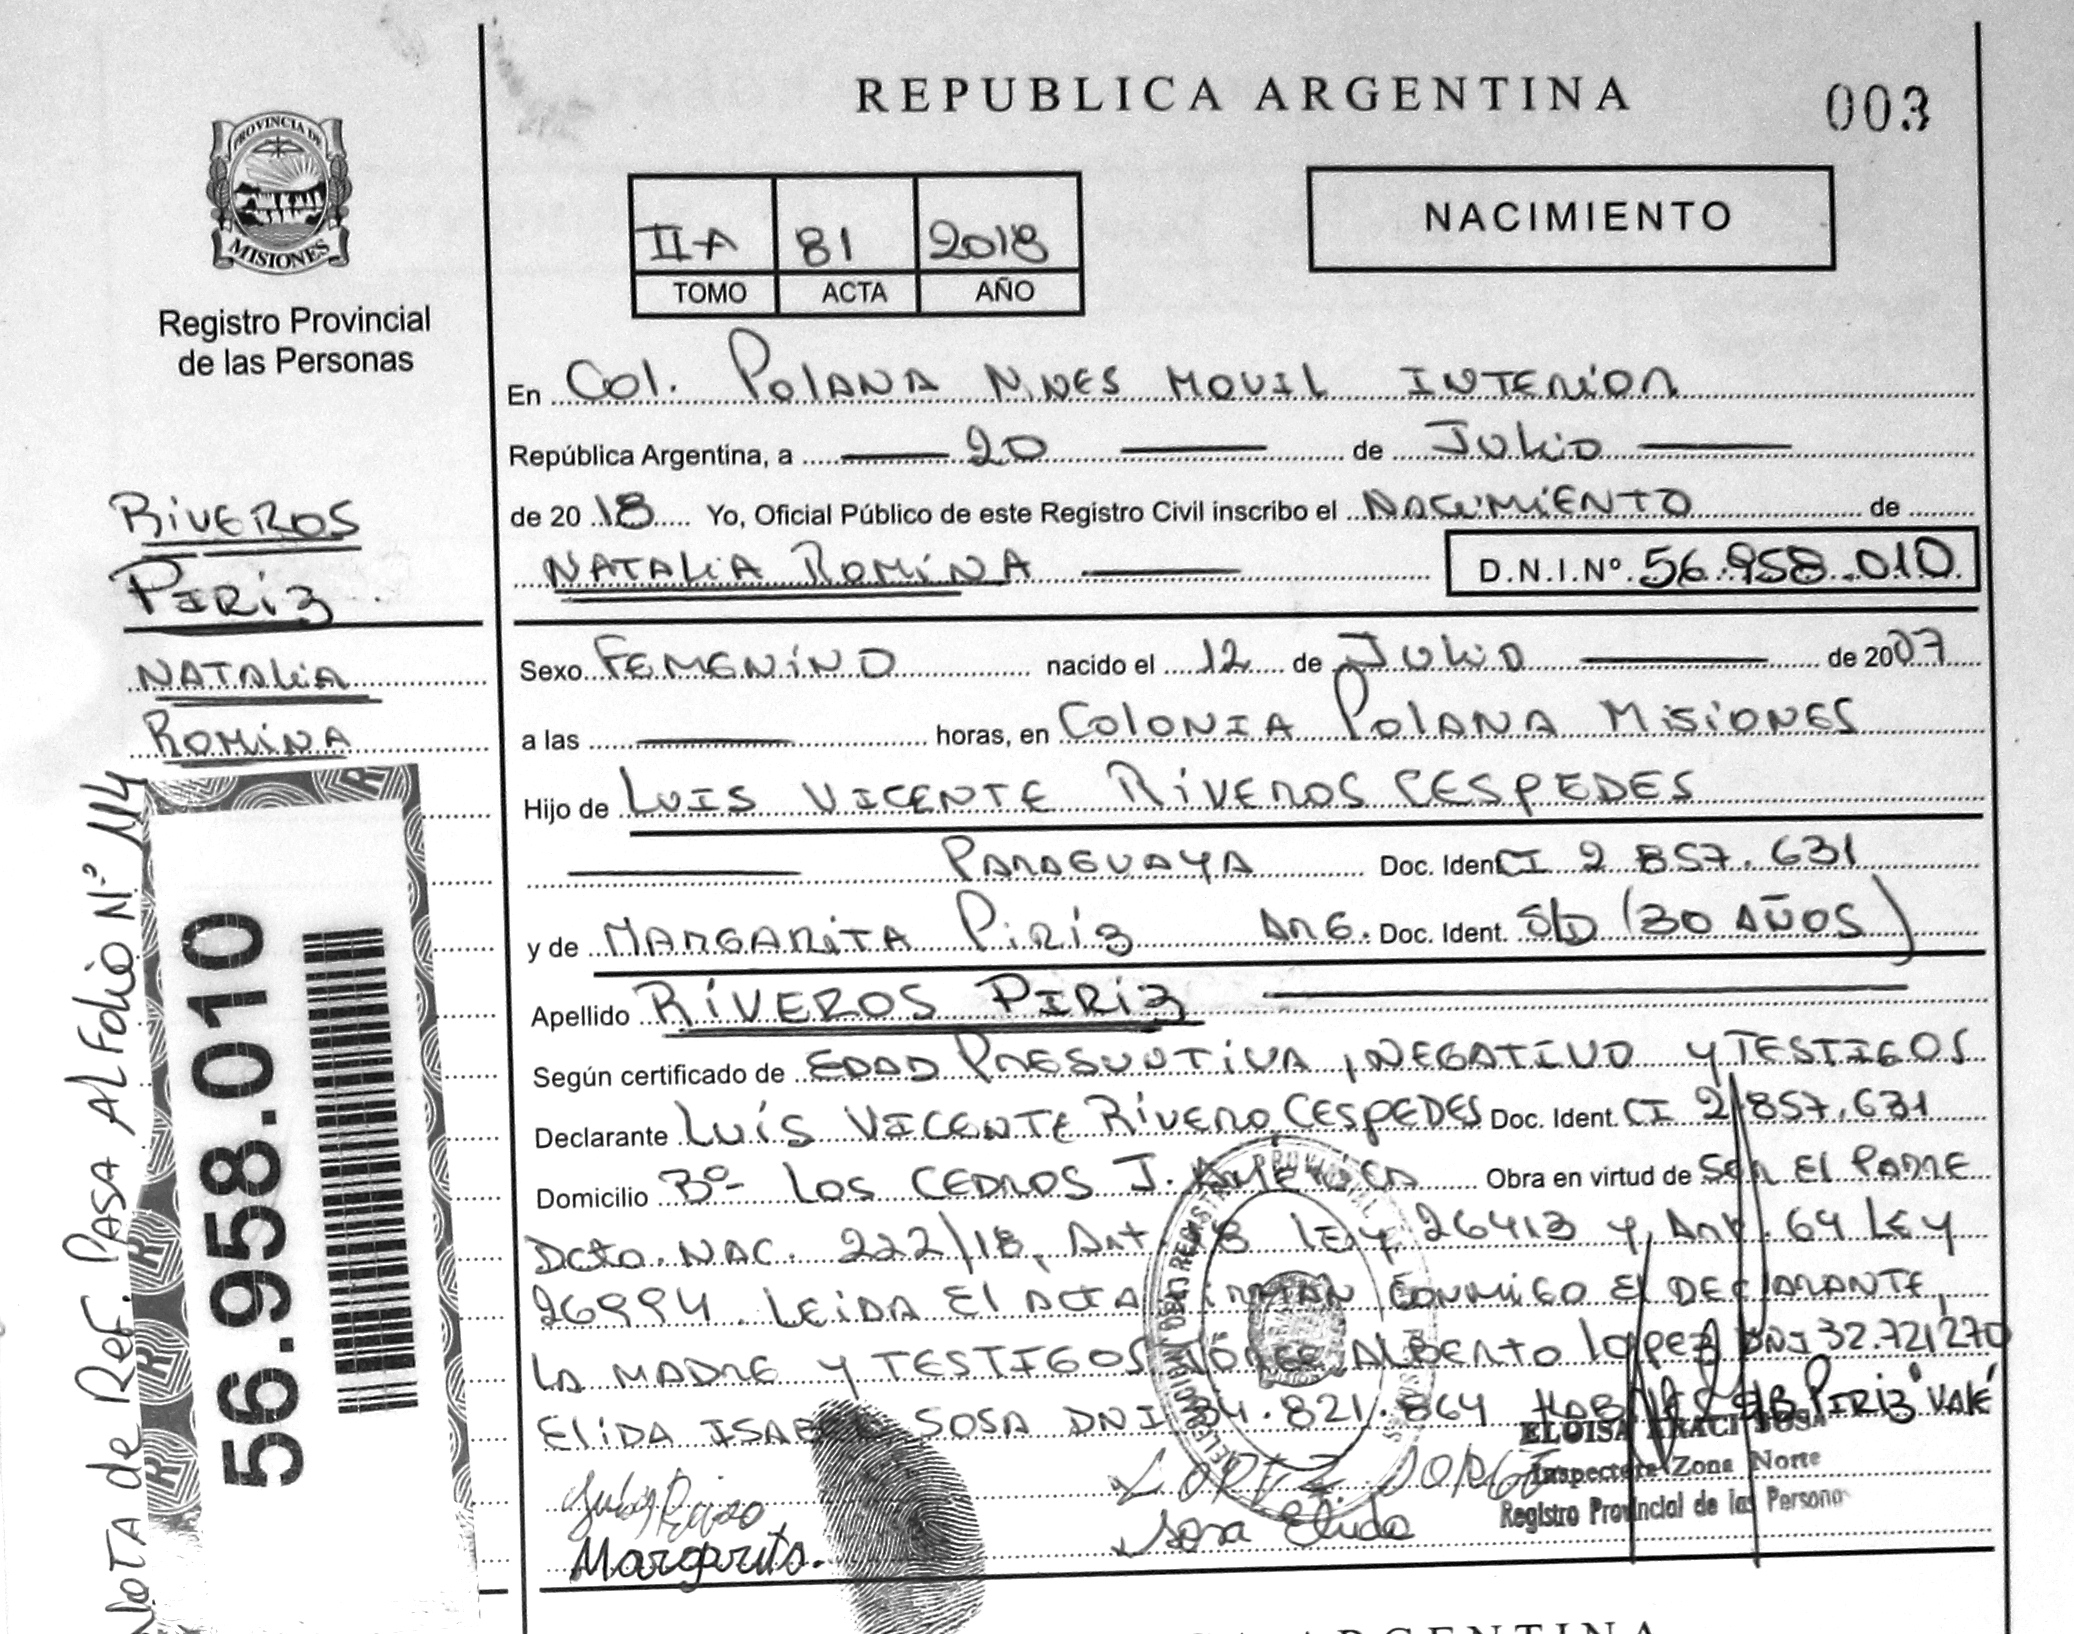 REPUBLICA ARGENTINA
003
PROVINCIA DE
MISIONES
Registro Provincial
de las Personas
II-A 81 2018
TOMO ACTA AÑO
NACIMIENTO
En Col. Polana Mnes Movil Interior
República Argentina, a 20 de Julio
de 2018 Yo, Oficial Público de este Registro Civil inscribo el Nacimiento de
Natalia Romina D.N.I.Nº 56.958.010
Riveros
Piriz
Natalia
Romina
Sexo Femenino nacido el 12 de Julio de 2007
a las horas, en Colonia Polana Misiones
Hijo de Luis Vicente Riveros Cespedes
Paraguaya Doc. Ident CI 2 857.631
y de Margarita Piriz Arg. Doc. Ident. S/D (30 Años)
Apellido Riveros Piriz
Según certificado de Edad Presuntiva, Negativo y Testigos
Declarante Luis Vicente Rivero Cespedes Doc. Ident. CI 2 857.631
Domicilio Bº Los Cedros J. America Obra en virtud de Ser El Padre
Dcto. Nac. 222/18, Art 8 Ley 26413 y Art. 64 Ley
26994. Leida El Acta Firman Conmigo El Declarante,
La Madre y Testigos Jorge Alberto Lopez DNI 32.721270
Elida Isabel Sosa DNI 34.821.864 Piriz Vale
Margarita.
Lopez Jorge
Sosa Elida
ELOISA ARACI SOSA
Inspectora Zona Norte
Registro Provincial de las Personas
Nota de Ref. Pasa Al Folio Nº 114
56.958.010
ARGENTINA